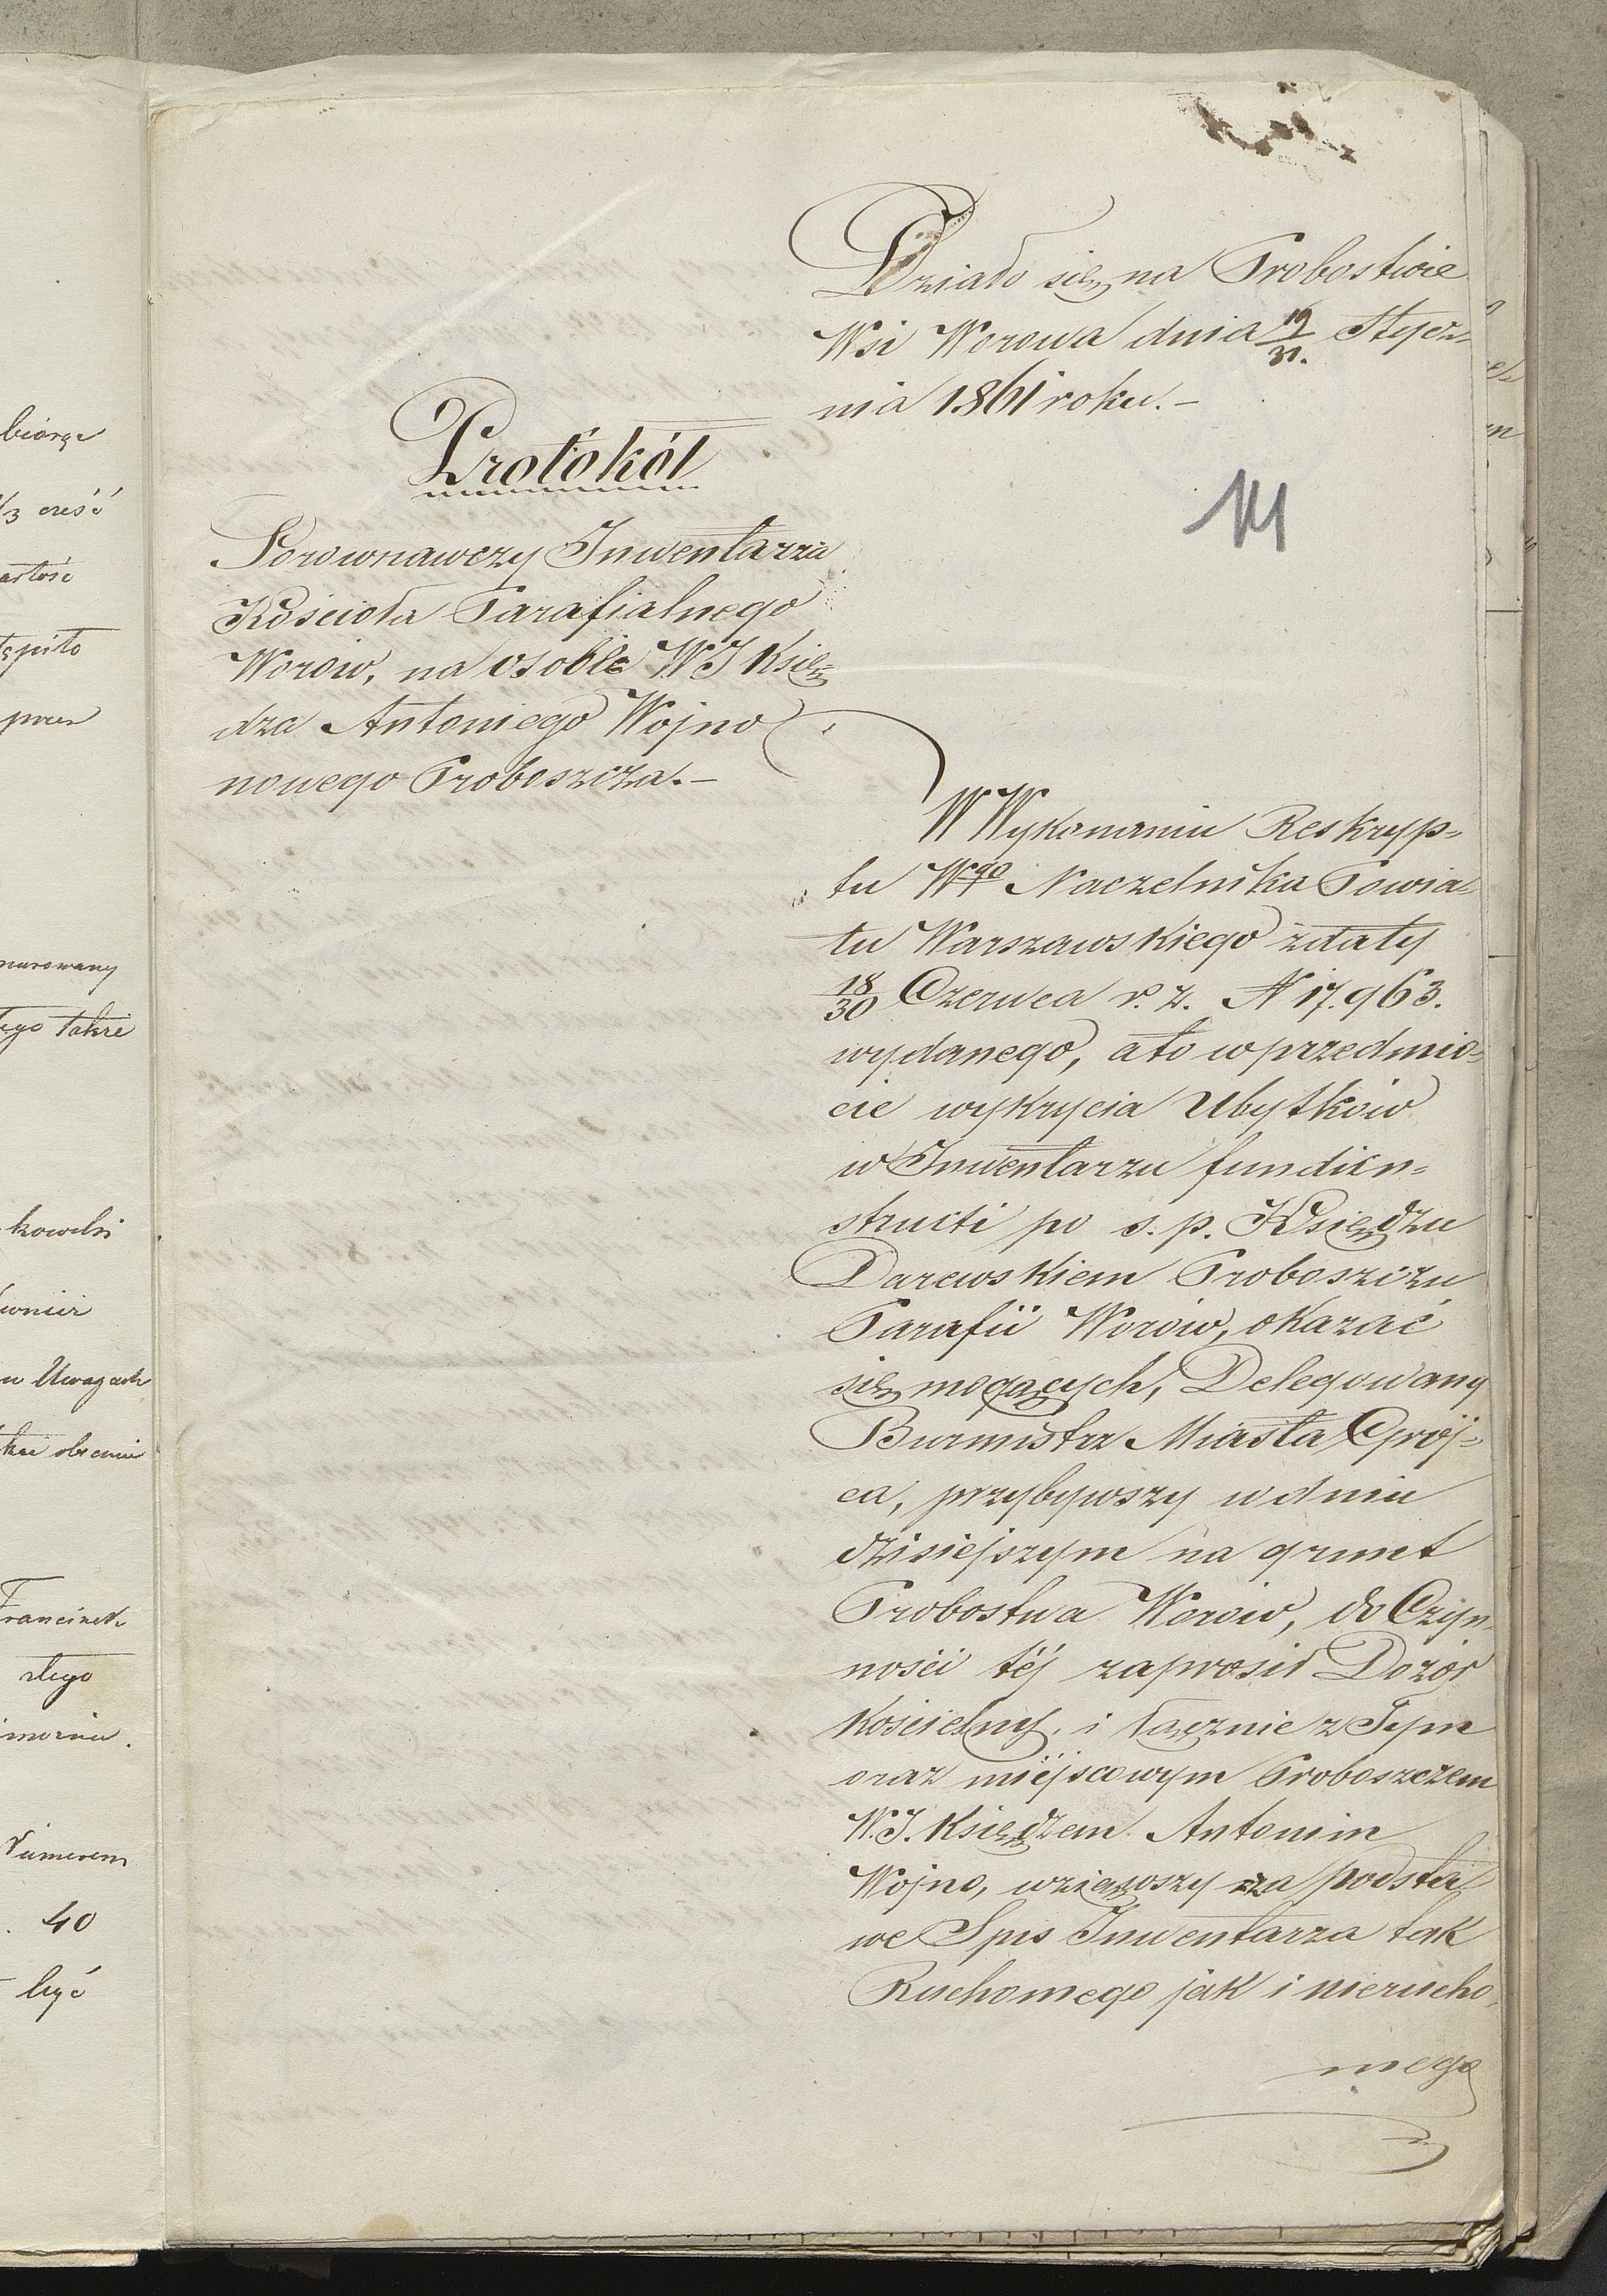 biorąc
1/3 cześć
artość
tąpiło
przez
murowany
tego także
kowelsi
ównier
w Uwagach
Francizek
stego
Numerem
40
być
Działo się na Probostwie
Wsi Worowa dnia 19/31. Stycz-
nia 1861 roku.-
Protokół
141
Porównawczy Inwentarza
Kościoła Parafialnego
Worów, na osobie WJ Ksie-
dza Antoniego Wojno
nowego Proboszcza.-
W Wykonaniu Reskryp-
tu Wgo Naczelnika Powia-
tu Warszawskiego zdaty
18/30 Czerwca r. z. N 17.963.
wydanego, a to w przedmio-
cie wykrycia Ubytków
w Inwentarzu fundi in-
structi po s. p. Księdzu
Darewskiem Proboszczu
Parafii Worów, okazać
się mogących, Delegowany
Burmistrz Miasta Grój-
ca, przybywszy w dniu
dzisiejszym na grunt
Probostwa Worów, do Czyn-
ności téj zaprosił Dozór
Kościelny, i łącznie z Tym
oraz miéjscowym Proboszczem
W.J. Księdzem Antonim
Wojno, wziąwszy za podsta
we Spis Inwentarza tak
Ruchomego jak i nierucho-
mego